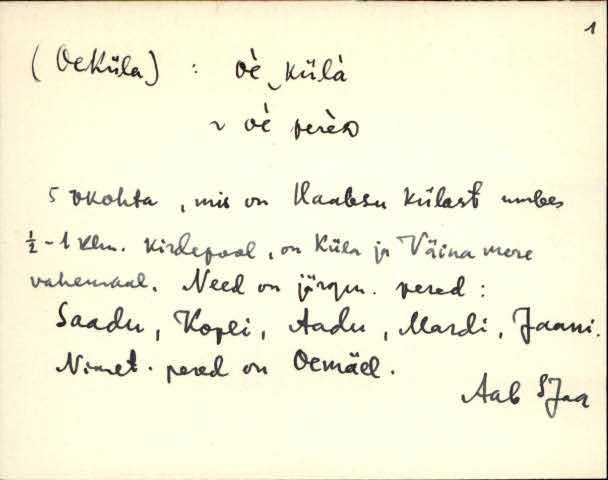 1
(Oeküla) : oè külà
~ oè perèD
5 tkohta, mis on Haabsu külast umbes
½-1 klm. kirdepool, on küla ja Väina mere
vahemaal. Need on järgm. pered:
Saadu, Kopli, Aadu, Mardi, Jaani.
Nimet. pered on Oemäel.
Aab Jaa